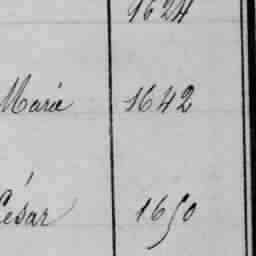 1624
Marie 1642
César 1650